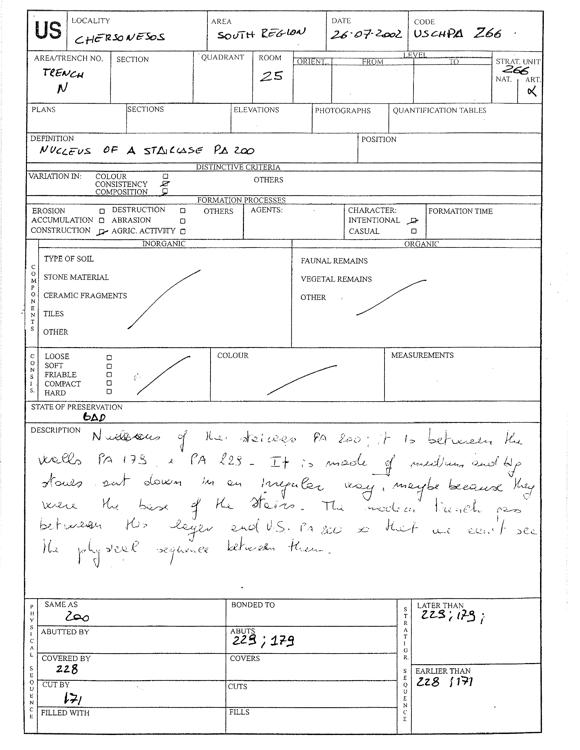 US
LOCALITY
CHERSONESOS
AREA
SOUTH REGION
DATE
26-07-2002
CODE
USCHPA 266
AREA/TRENCH NO.
TRENCH
N
SECTION
QUADRANT
ROOM
25
LEVEL
ORIENT. FROM TO
STRAT. UNIT
266
NAT. ART.
α
PLANS
SECTIONS
ELEVATIONS
PHOTOGRAPHS
QUANTIFICATION TABLES
DEFINITION
NUCLEUS OF A STAIRCASE PA 200
POSITION
DISTINCTIVE CRITERIA
VARIATION IN: COLOUR
CONSISTENCY
COMPOSITION
OTHERS
FORMATION PROCESSES
EROSION DESTRUCTION OTHERS
ACCUMULATION ABRASION
CONSTRUCTION AGRIC. ACTIVITY
AGENTS:
CHARACTER:
INTENTIONAL
CASUAL
FORMATION TIME
COMPONENTS
INORGANIC
TYPE OF SOIL
STONE MATERIAL
CERAMIC FRAGMENTS
TILES
OTHER
ORGANIC
FAUNAL REMAINS
VEGETAL REMAINS
OTHER
CONSIS.
LOOSE
SOFT
FRIABLE
COMPACT
HARD
COLOUR
MEASUREMENTS
STATE OF PRESERVATION
BAD
DESCRIPTION
of the PA 200; it is between the
walls PA 179 e PA 229. It is made of medium and big
stones down in an irregular way, maybe because they
were the base of the stairs. The modern trench pass
between this layer and US. PA 200 so that we can't see
the physical sequence between them.
PHYSICAL SEQUENCE
SAME AS
200
ABUTTED BY
COVERED BY
228
CUT BY
171
FILLED WITH
BONDED TO
ABUTS
229; 179
COVERS
CUTS
FILLS
STRATIGR. SEQUENCE
LATER THAN
229; 179;
EARLIER THAN
228; 171